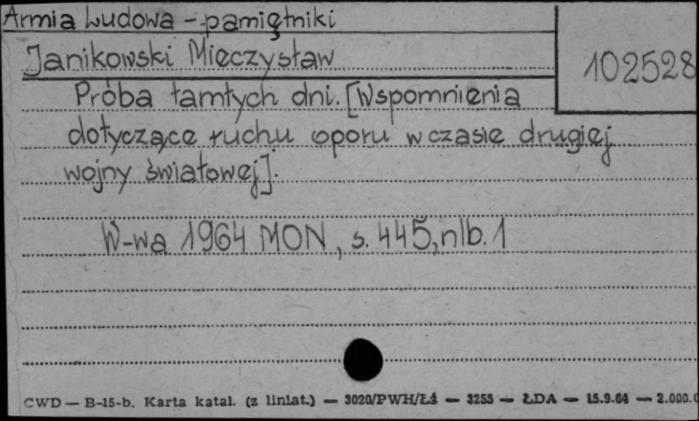 Armia Ludowa - pamiętniki
Janikowski Mieczysław
102528
Próba tamtych dni. [Wspomnienia
dotyczące ruchu oporu w czasie drugiej
wojny światowej].
W-wa 1964 MON, s. 445, nlb. 1
CWD — B-15-b. Karta katal. (z liniat.) — 3020/PWH/Łź — 3255 — ŁDA — 15.9.64 — 2.000.0